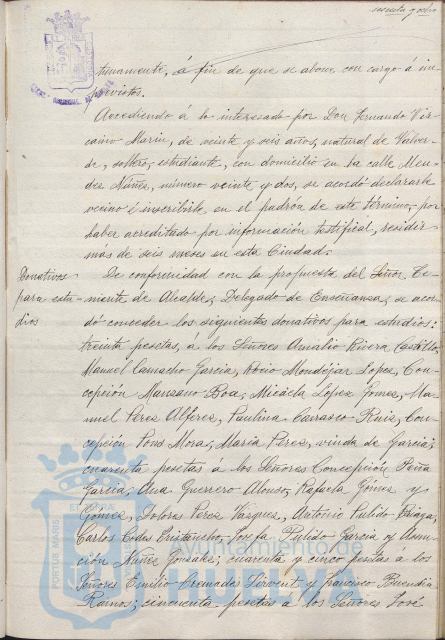 sesenta y ocho
tunamente, á fin de que se abone con cargo á im-
previstos.
Accediendo á lo interesado por Don Fernando Viz-
caino Marin, de veinte y seis años, natural de Valver-
de, soltero, estudiante, con domicilio en la calle Men-
dez Núñez, número veinte y dos, se acordó declararle
vecino é inscribirle en el padrón de este término, por
haber acreditado por información testifical, residir
mas de seis meses en esta Ciudad.
Donativos
para estu-
dios
De conformidad con la propuesta del Señor Te-
niente de Alcalde, Delegado de Enseñanza, se acor-
dó conceder los siguientes donativos para estudios:
treinta pesetas, á los Señores Amalio Rivera Castillo,
Manuel Camacho Garcia, Rocio Mondéjar Lopez, Con-
cepción Manzano Boa, Micaela Lopez Gomez, Ma-
nuel Perez Alférez, Paulina Carrasco Ruiz, Con-
cepción Pons Mora, Maria Perez, viuda de Garcia;
cuarenta pesetas a los Señores Concepción Peña
Garcia, Ana Guerrero Alonso, Rafaela Gómez y
Gómez, Dolores Perez Vazquez, Antonio Pulido
Carlos Codes Eristancho, Josefa Pulido Garcia y Asun-
ción Nuñez Gonzalez; cuarenta y cinco pesetas á los
Señores Emilio Cremades Sirvent y Francisco Buendia
Ramos; cincuenta pesetas a los Señores José
PORTUS MARIS
Ayuntamiento de
HUELVA